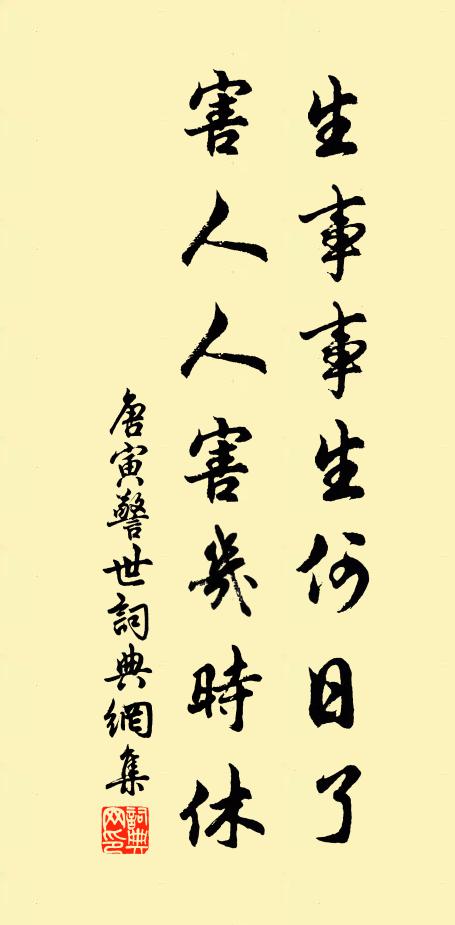 生事事生何日了
害人人害幾時休
唐寅警世詞典網集
詞典
网印